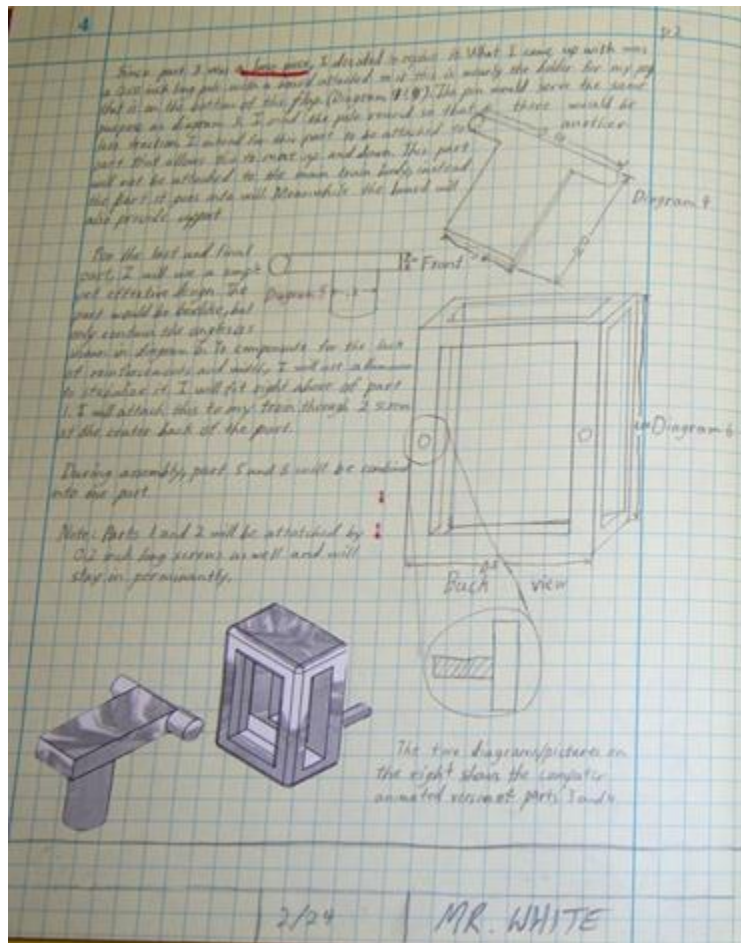 4
Since part 2 was a large part, I decided to revise it. What I came up with was
a inch long pole with a board attached to it this is mainly the holder for my peg
that is on the bottom of the flap (Diagram The pin would serve the same
purpose as diagram 3. I used the pole round so that there would be
less friction. I intend for this part to be attached to another
part that allows this to move up and down. This part
will not be attached to the main train body, instead
the part it goes into will. Meanwhile the board will
also provide support.
Diagram 4
For the last and final
part, I will use a simple
yet effective design. The
part would be boxlike, but
only contain the angles as
shown in diagram 6. To compensate for the lack
of reinforcements and width, I will use aluminum
to stabilize it. I will fit right above of part
1. I will attach this to my train through 2 screws
at the center back of the part.
Front
Diagram 5
Diagram 6
During assembly, part 5 and 6 will be combined
into one part
Note: Parts 1 and 2 will be attatched by
0.2 inch long screws as well and will
stay in permanantly.
Back view
The two diagrams/pictures on
the right shows the computer
animated version of parts 3 and 4
2/24
MR. WHITE